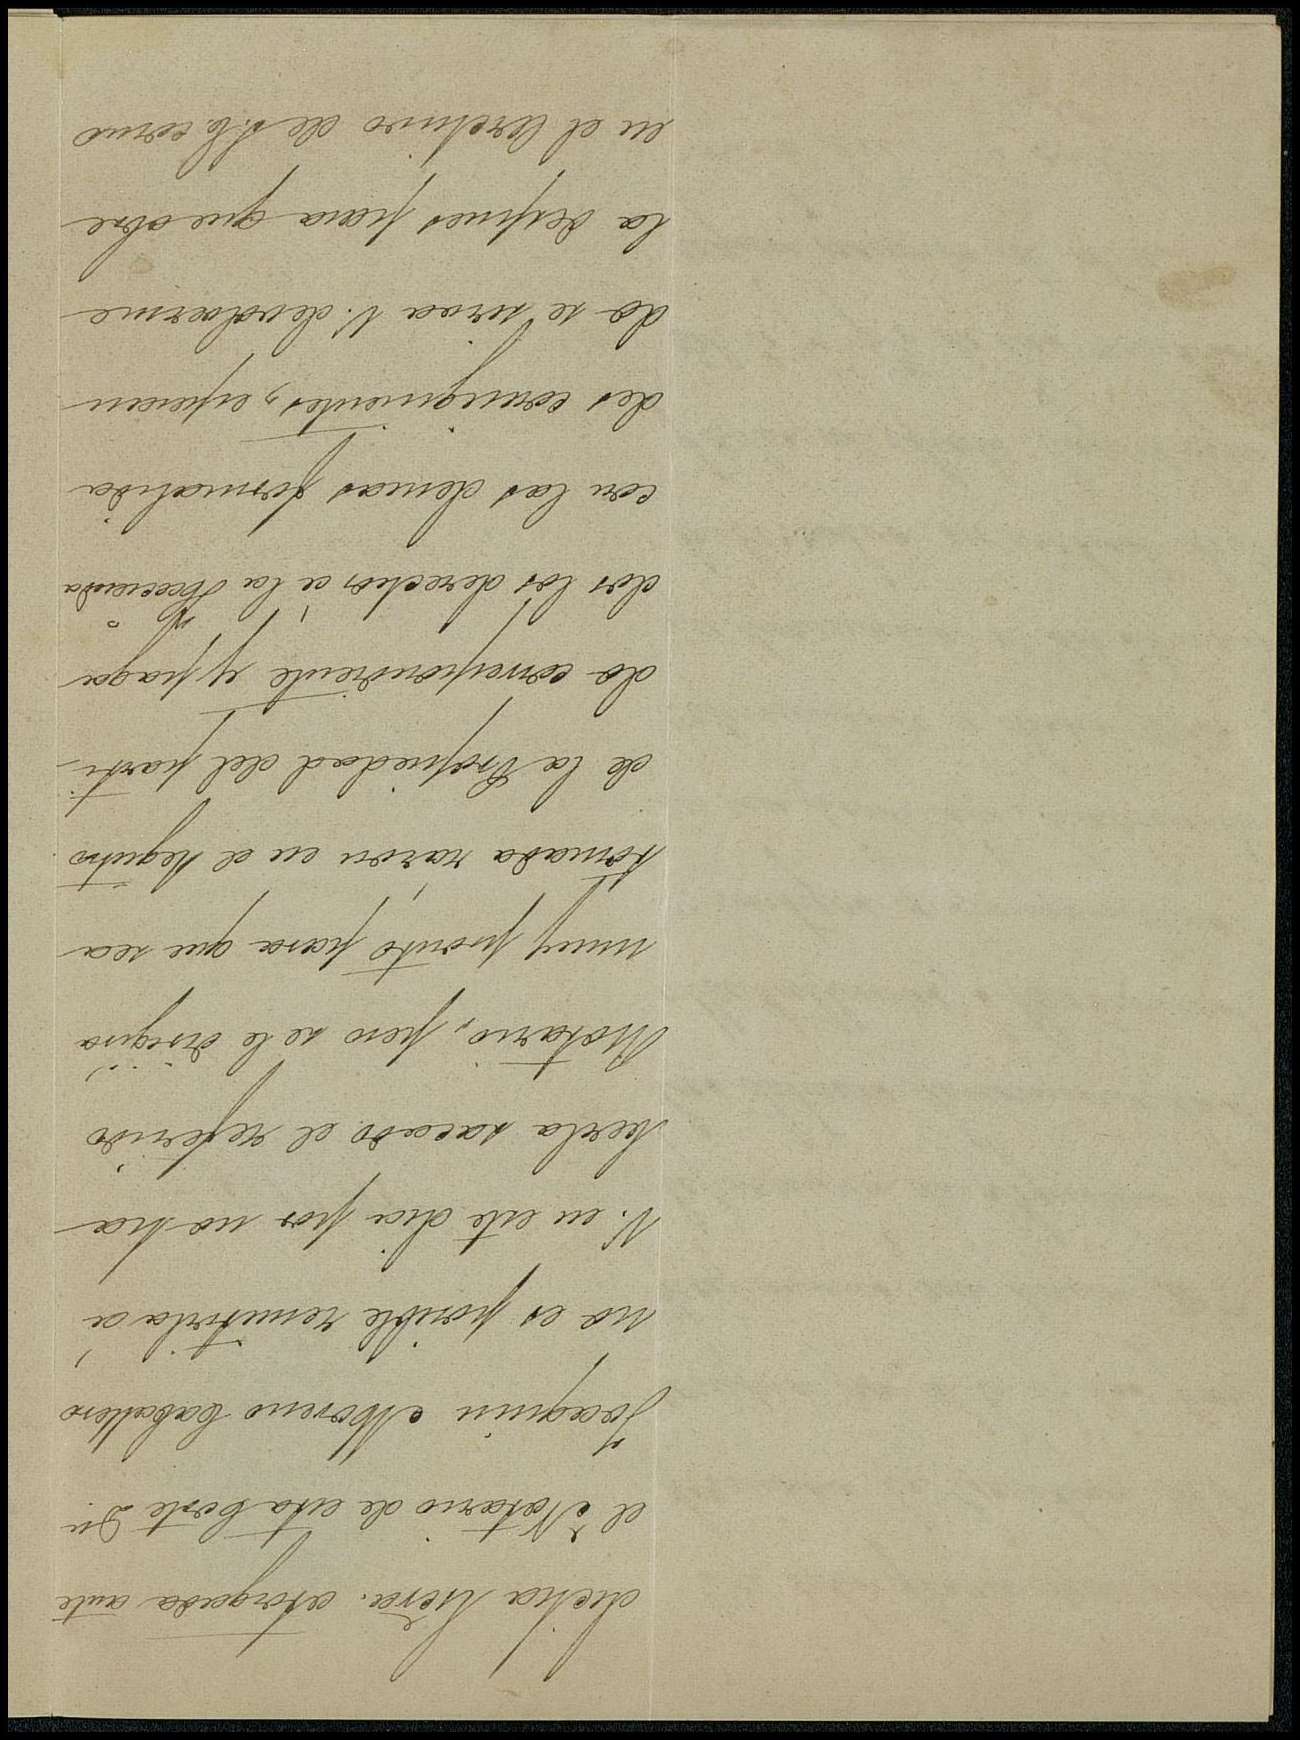 dicha Escra. otorgada ante
el Notario de esta Corte Dn.
Joaquin Moreno Caballero
no es posible remitirla á
V. en este dia por no ha
berla sacado el referido
Notario, pero se le dirigirá
muy pronto para que sea
tomada razon en el Registro
de la Propiedad del parti-
do correspondiente y paga
dos los derechos á la Hacienda
con las demas formalida
des consiguientes, esperan
do se sirva V. devolverme
la despues para que obre
en el Archivo de S.E. como